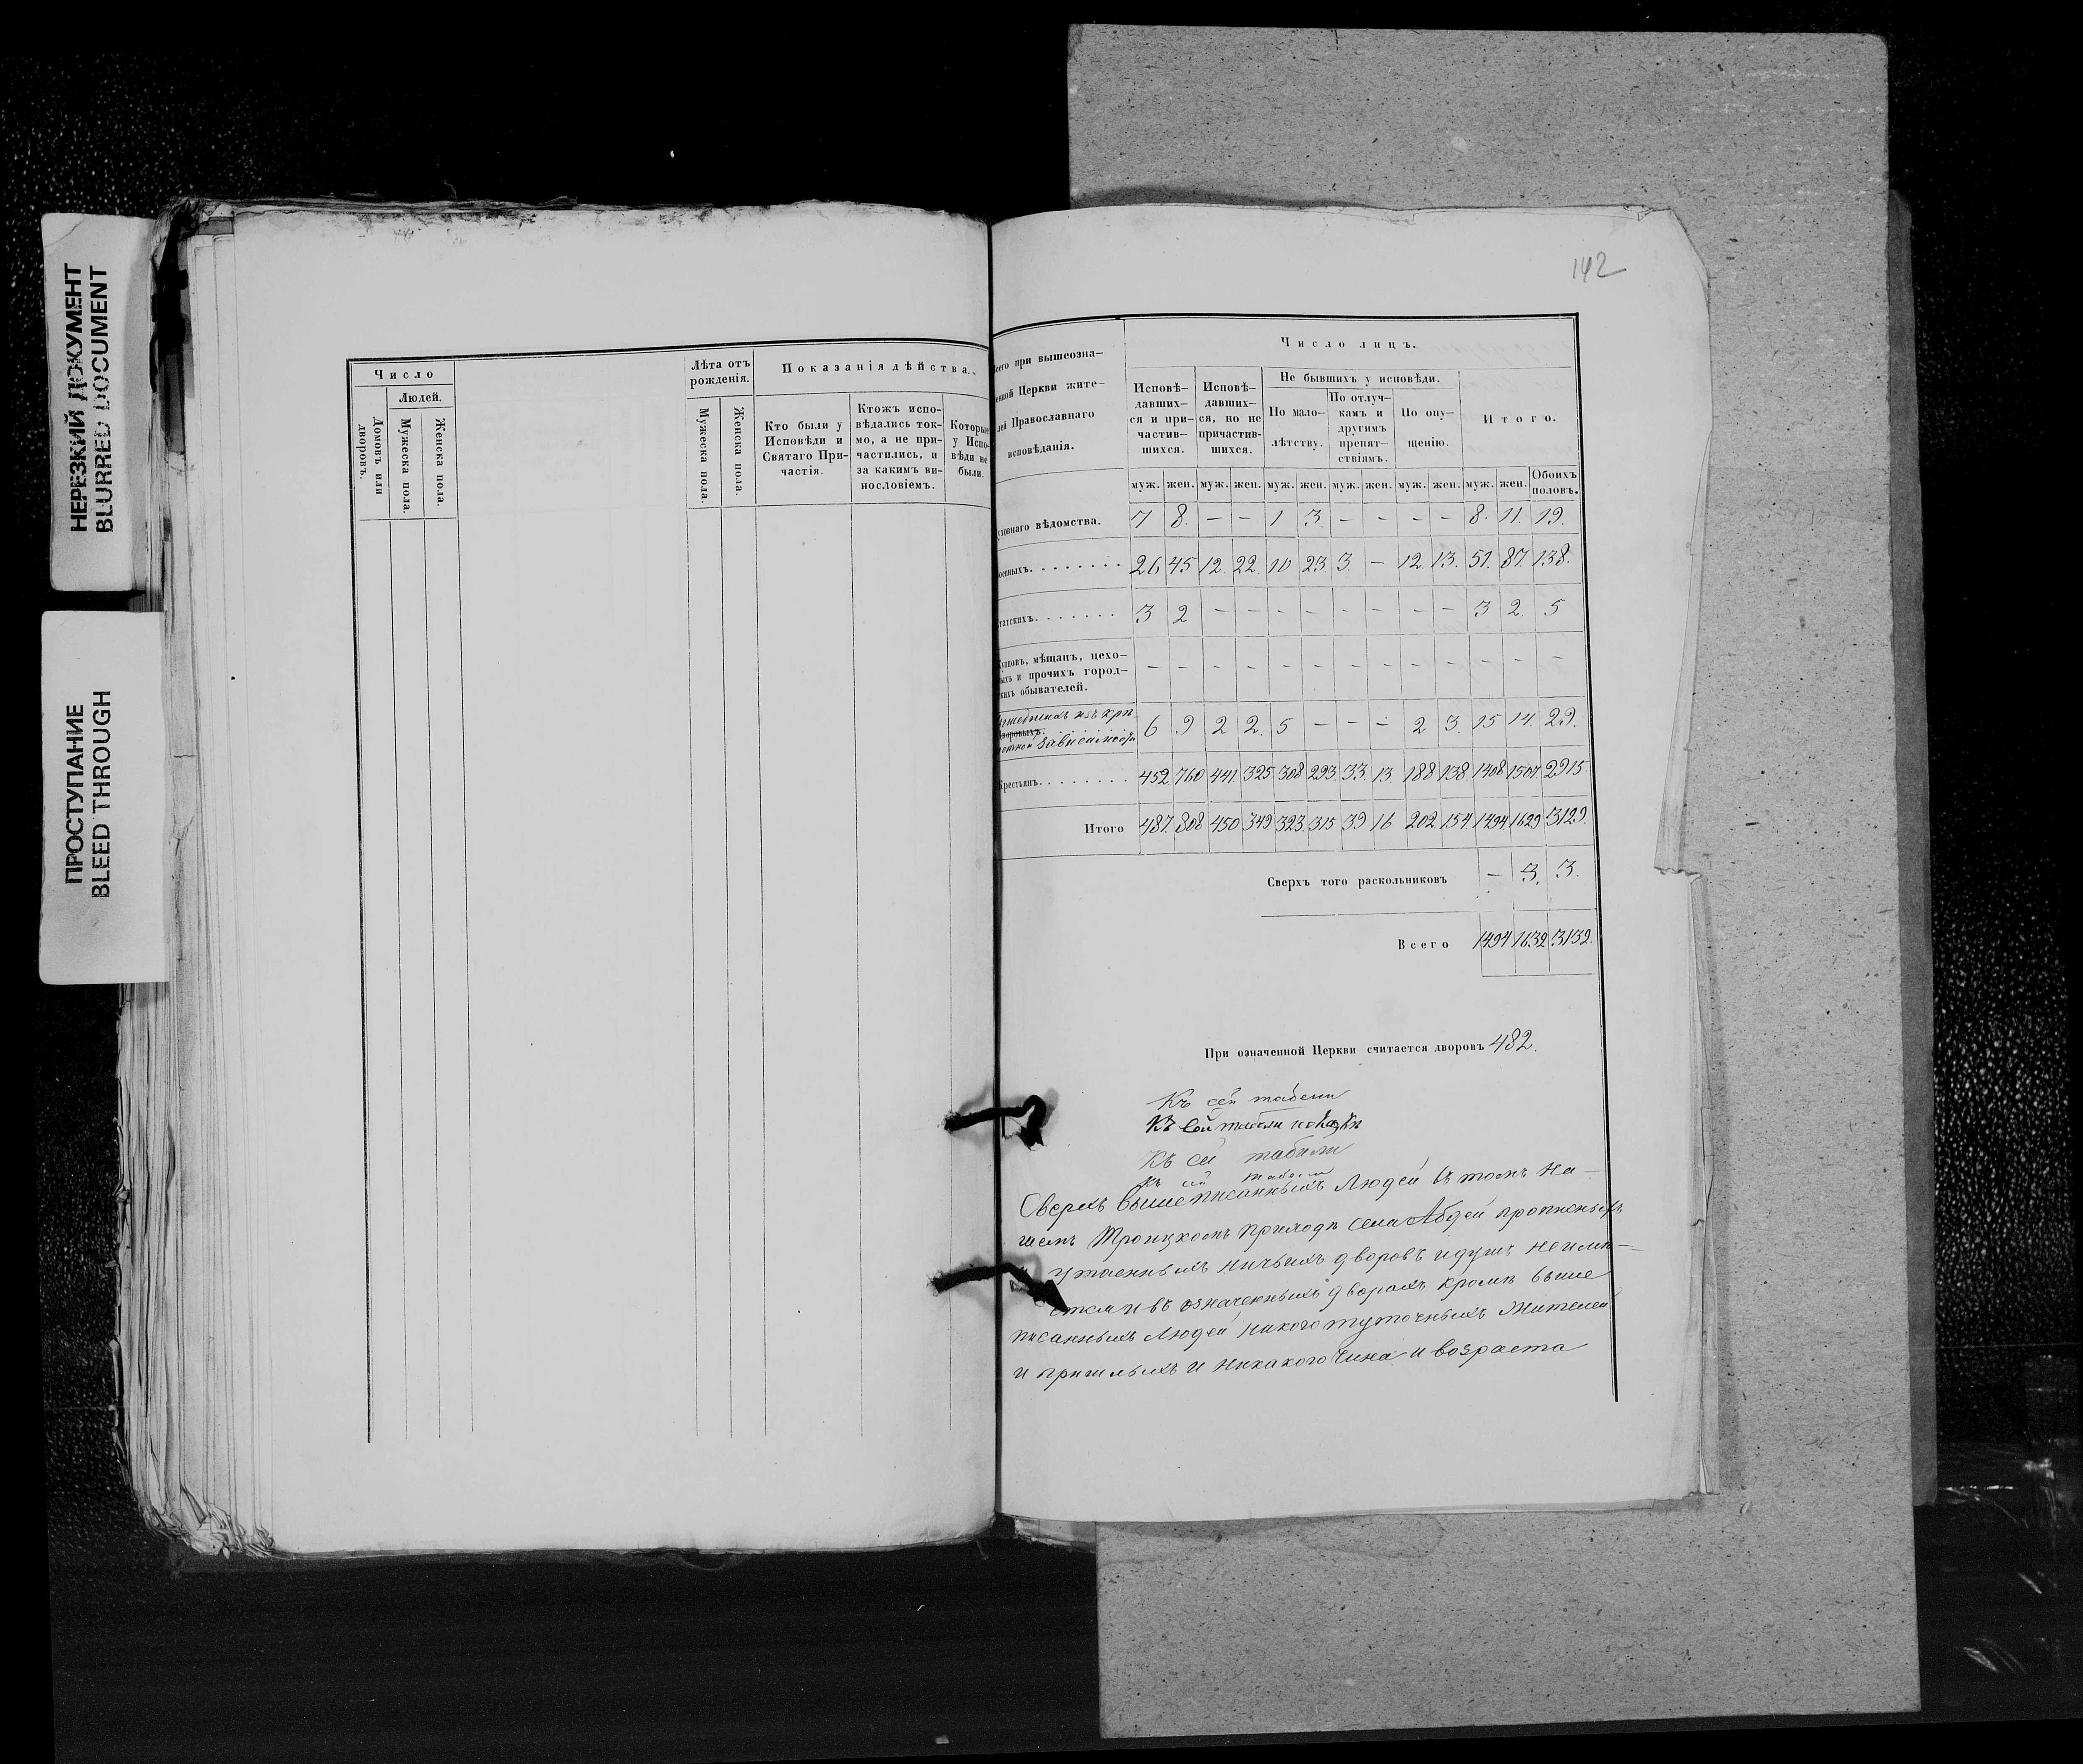 НЕРЕЗКИЙ ДОКУМЕНТ
BLURRED DOCUMENT
ПРОСТУПАНИЕ
BLEED THROUGH
Число
Людей.
Домовъ или дворовъ.
Мужеска пола.
Женска пола.
Лѣта отъ рожденія.
Мужеска пола.
Женска пола.
Показанія дѣйства.
Кто были у
Исповѣди и
Святаго При-
частія.
Ктожъ испо-
вѣдались ток-
мо, а не при-
частились, и
за какимъ ви-
нословіемъ.
Которые
у Испо-
вѣди не
были.
142
сего при вышеозна-
енной Церкви жите-
лей Православнаго
исповѣданія.
Число лицъ.
Исповѣ-
давших-
ся и при-
частив-
шихся.
Исповѣ-
давших-
ся, но не
причастив-
шихся.
Не бывшихъ у исповѣди.
По мало-
лѣтству.
По отлуч-
камъ и
другимъ
препят-
ствіямъ.
По опу-
щенію.
Итого.
муж. жен. муж. жен. муж. жен. муж. жен. муж. жен. муж. жен. Обоихъ половъ.
уховнаго вѣдомства. 7 8. – – 1 3. – – – – 8. 11. 19.
оенныхъ. 26 45 12. 22. 10 23. 3. – 12. 13. 51. 87. 138.
татскихъ. 3 2 – – – – – – – – 3 2. 5
упцовъ, мѣщанъ, цехо-
ыхъ и прочихъ город-
кихъ обывателей. – – – – – – – – – – – – –
шедшихъ изъ крѣ
Дворовыхъ.
постной зависимости 6 9 2 2. 5 – – – 2 3. 15 14. 29.
Крестьянъ. 452 760 441 325 308 293 33. 13. 188 138 1408 1507 2915
Итого 487. 808 450 349 323. 315 39 16 202. 154. 1494 1629 3129.
Сверхъ того раскольниковъ – 3. 3.
Всего 1494 1632 3132.
При означенной Церкви считается дворовъ 482.
Къ сей табели
Къ сей табели
Къ сей табели
Къ сей табели
Сверхъ вышеписанныхъ людей въ томъ на-
шемъ Троицкомъ приходѣ села Абдей прописныхъ
и утаенныхъ ничьихъ дворовъ и душъ неимѣ-
ется и въ означенныхъ дворахъ кромѣ выше
писанныхъ людей никого туточныхъ жителей
и пришлыхъ и никакого чина и возраста